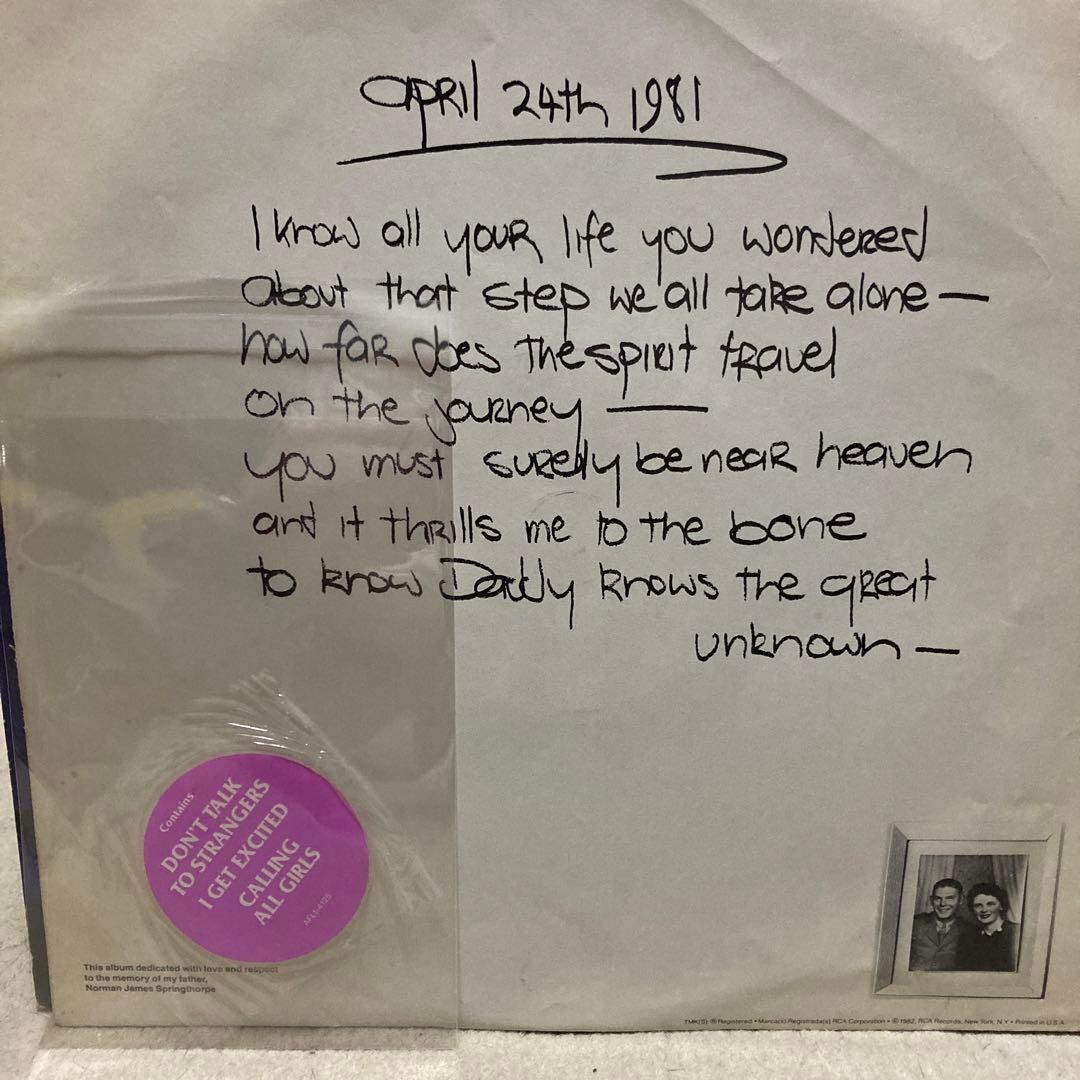 APRIl 24th 1981
I know all youR life you wondered
About that step we all take alone —
how faR does the spirit tRavel
on the jouRney —
you must suRely be neaR heaven
and it thRills me to the bone
to know Daddy knows the gReat
unknown —
Contains
DON'T TALK
TO STRANGERS
I GET EXCITED
CALLING
ALL GIRLS
AFL1-4125
This album dedicated with love and respect
to the memory of my father,
Norman James Springthorpe
TMK(S) ® Registered • Marca(s) Registrada(s) RCA Corporation • © 1982, RCA Records, New York, N.Y. • Printed in U.S.A.